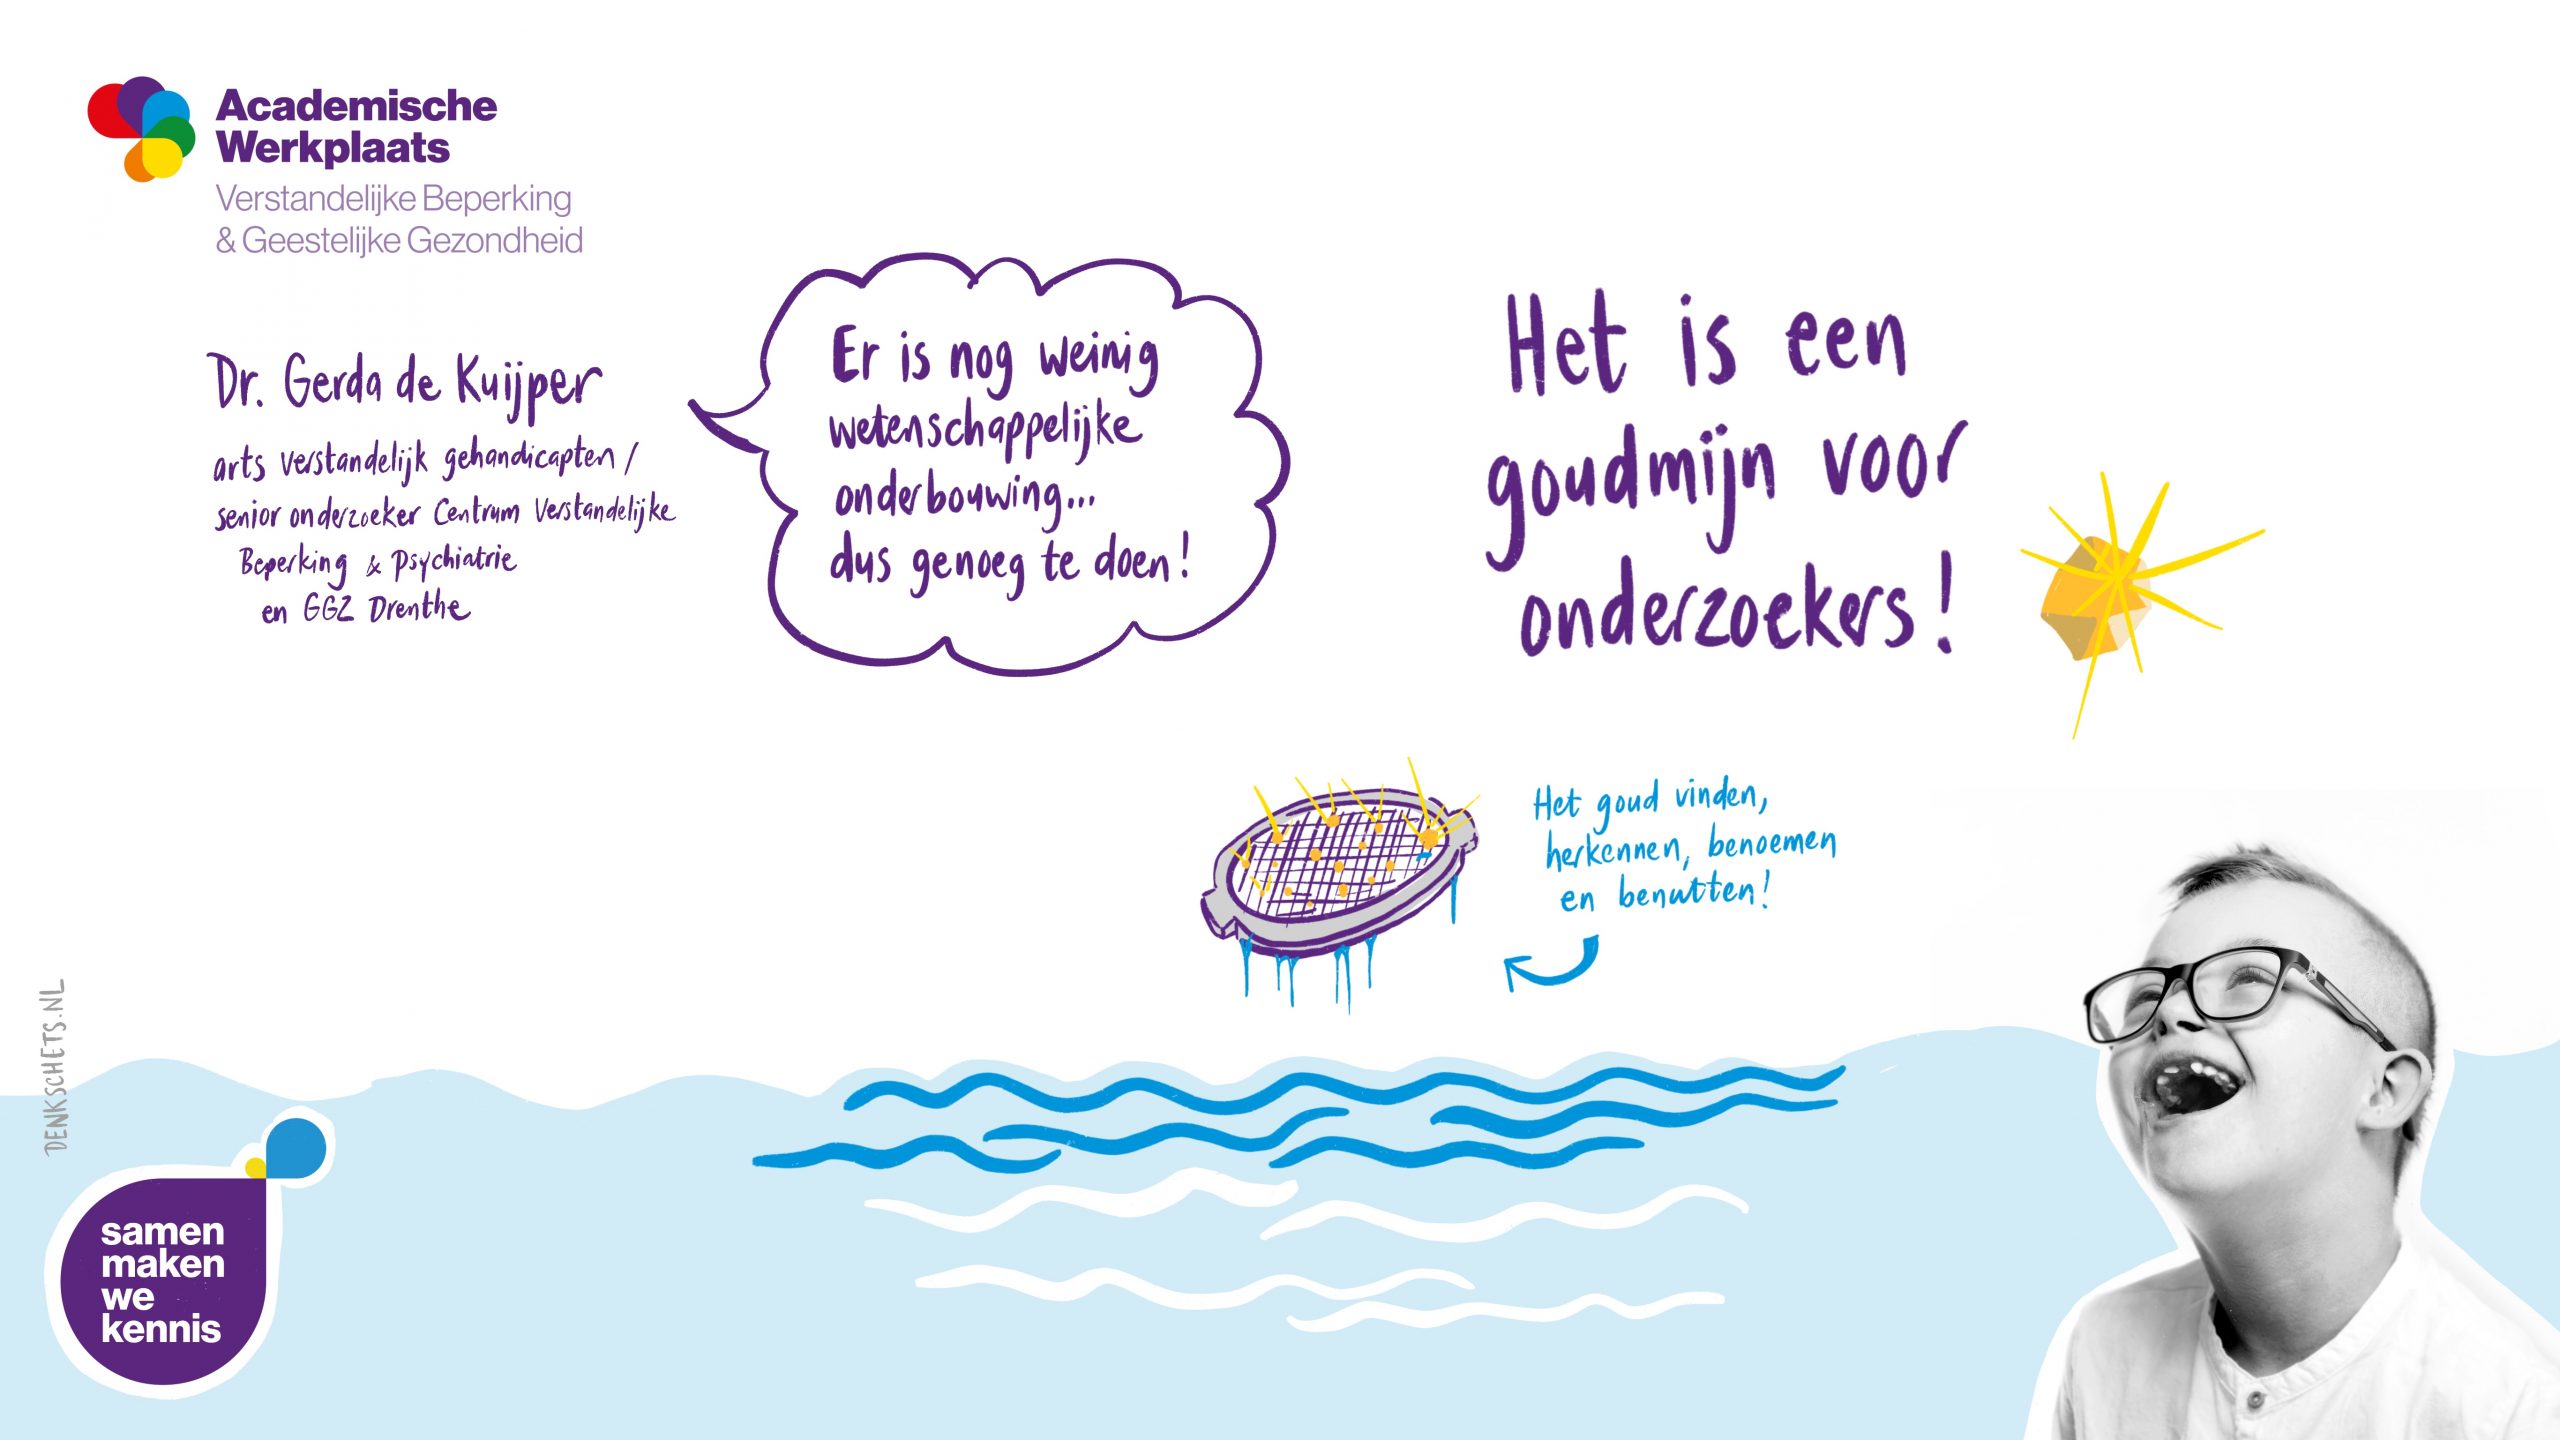 Academische
Werkplaats
Verstandelijke Beperking
& Geestelijke Gezondheid
Dr. Gerda de Kuijper
arts verstandelijk gehandicapten /
senior onderzoeker Centrum Verstandelijke
Beperking & Psychiatrie
en GGZ Drenthe
Er is nog weinig
wetenschappelijke
onderbouwing...
dus genoeg te doen!
Het is een
goudmijn voor
onderzoekers!
Het goud vinden,
herkennen, benoemen
en benutten!
DENKSCHETS.NL
samen
maken
we
kennis